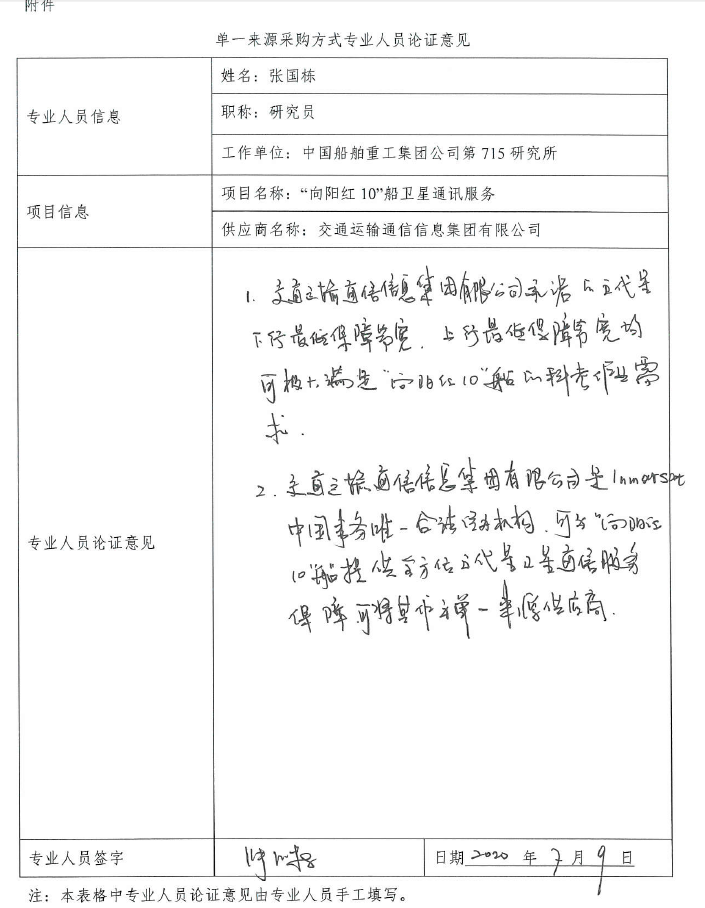 附件
单一来源采购方式专业人员论证意见
专业人员信息
姓名：张国栋
职称：研究员
工作单位：中国船舶重工集团公司第 715 研究所
项目信息
项目名称：“向阳红 10”船卫星通讯服务
供应商名称：交通运输通信信息集团有限公司
专业人员论证意见
1. 交通运输通信信息集团有限公司承诺的五代星
下行最低保障带宽、上行最低保障带宽均
可极大满足“向阳红10”船的科考作业需
求.
2. 交通运输通信信息集团有限公司是Inmarsat
中国事务唯一合法机构，可为“向阳红
10”船提供全方位五代星卫星通信服务
保障可将其作为单一来源供应商.
专业人员签字
日期 2020 年 7 月 9 日
注：本表格中专业人员论证意见由专业人员手工填写。